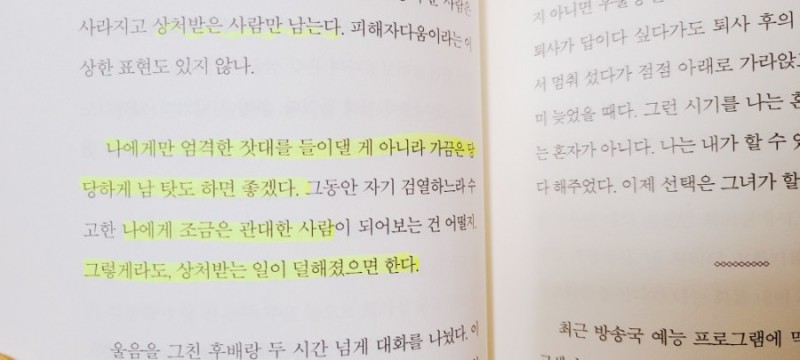 사라지고 상처받은 사람만 남는다. 피해자다움이라는 이
상한 표현도 있지 않나.
나에게만 엄격한 잣대를 들이댈 게 아니라 가끔은 당
당하게 남 탓도 하면 좋겠다. 그동안 자기 검열하느라 수
고한 나에게 조금은 관대한 사람이 되어보는 건 어떨지.
그렇게라도, 상처받는 일이 덜해졌으면 한다.
울음을 그친 후배랑 두 시간 넘게 대화를 나눴다. 이
지 아니면
퇴사가 답이다 싶다가도 퇴사 후의
서 멈춰 섰다가 점점 아래로 가라앉
미 늦었을 때다. 그런 시기를 나는 혼
는 혼자가 아니다. 나는 내가 할 수 있
다 해주었다. 이제 선택은 그녀가 할
최근 방송국 예능 프로그램에